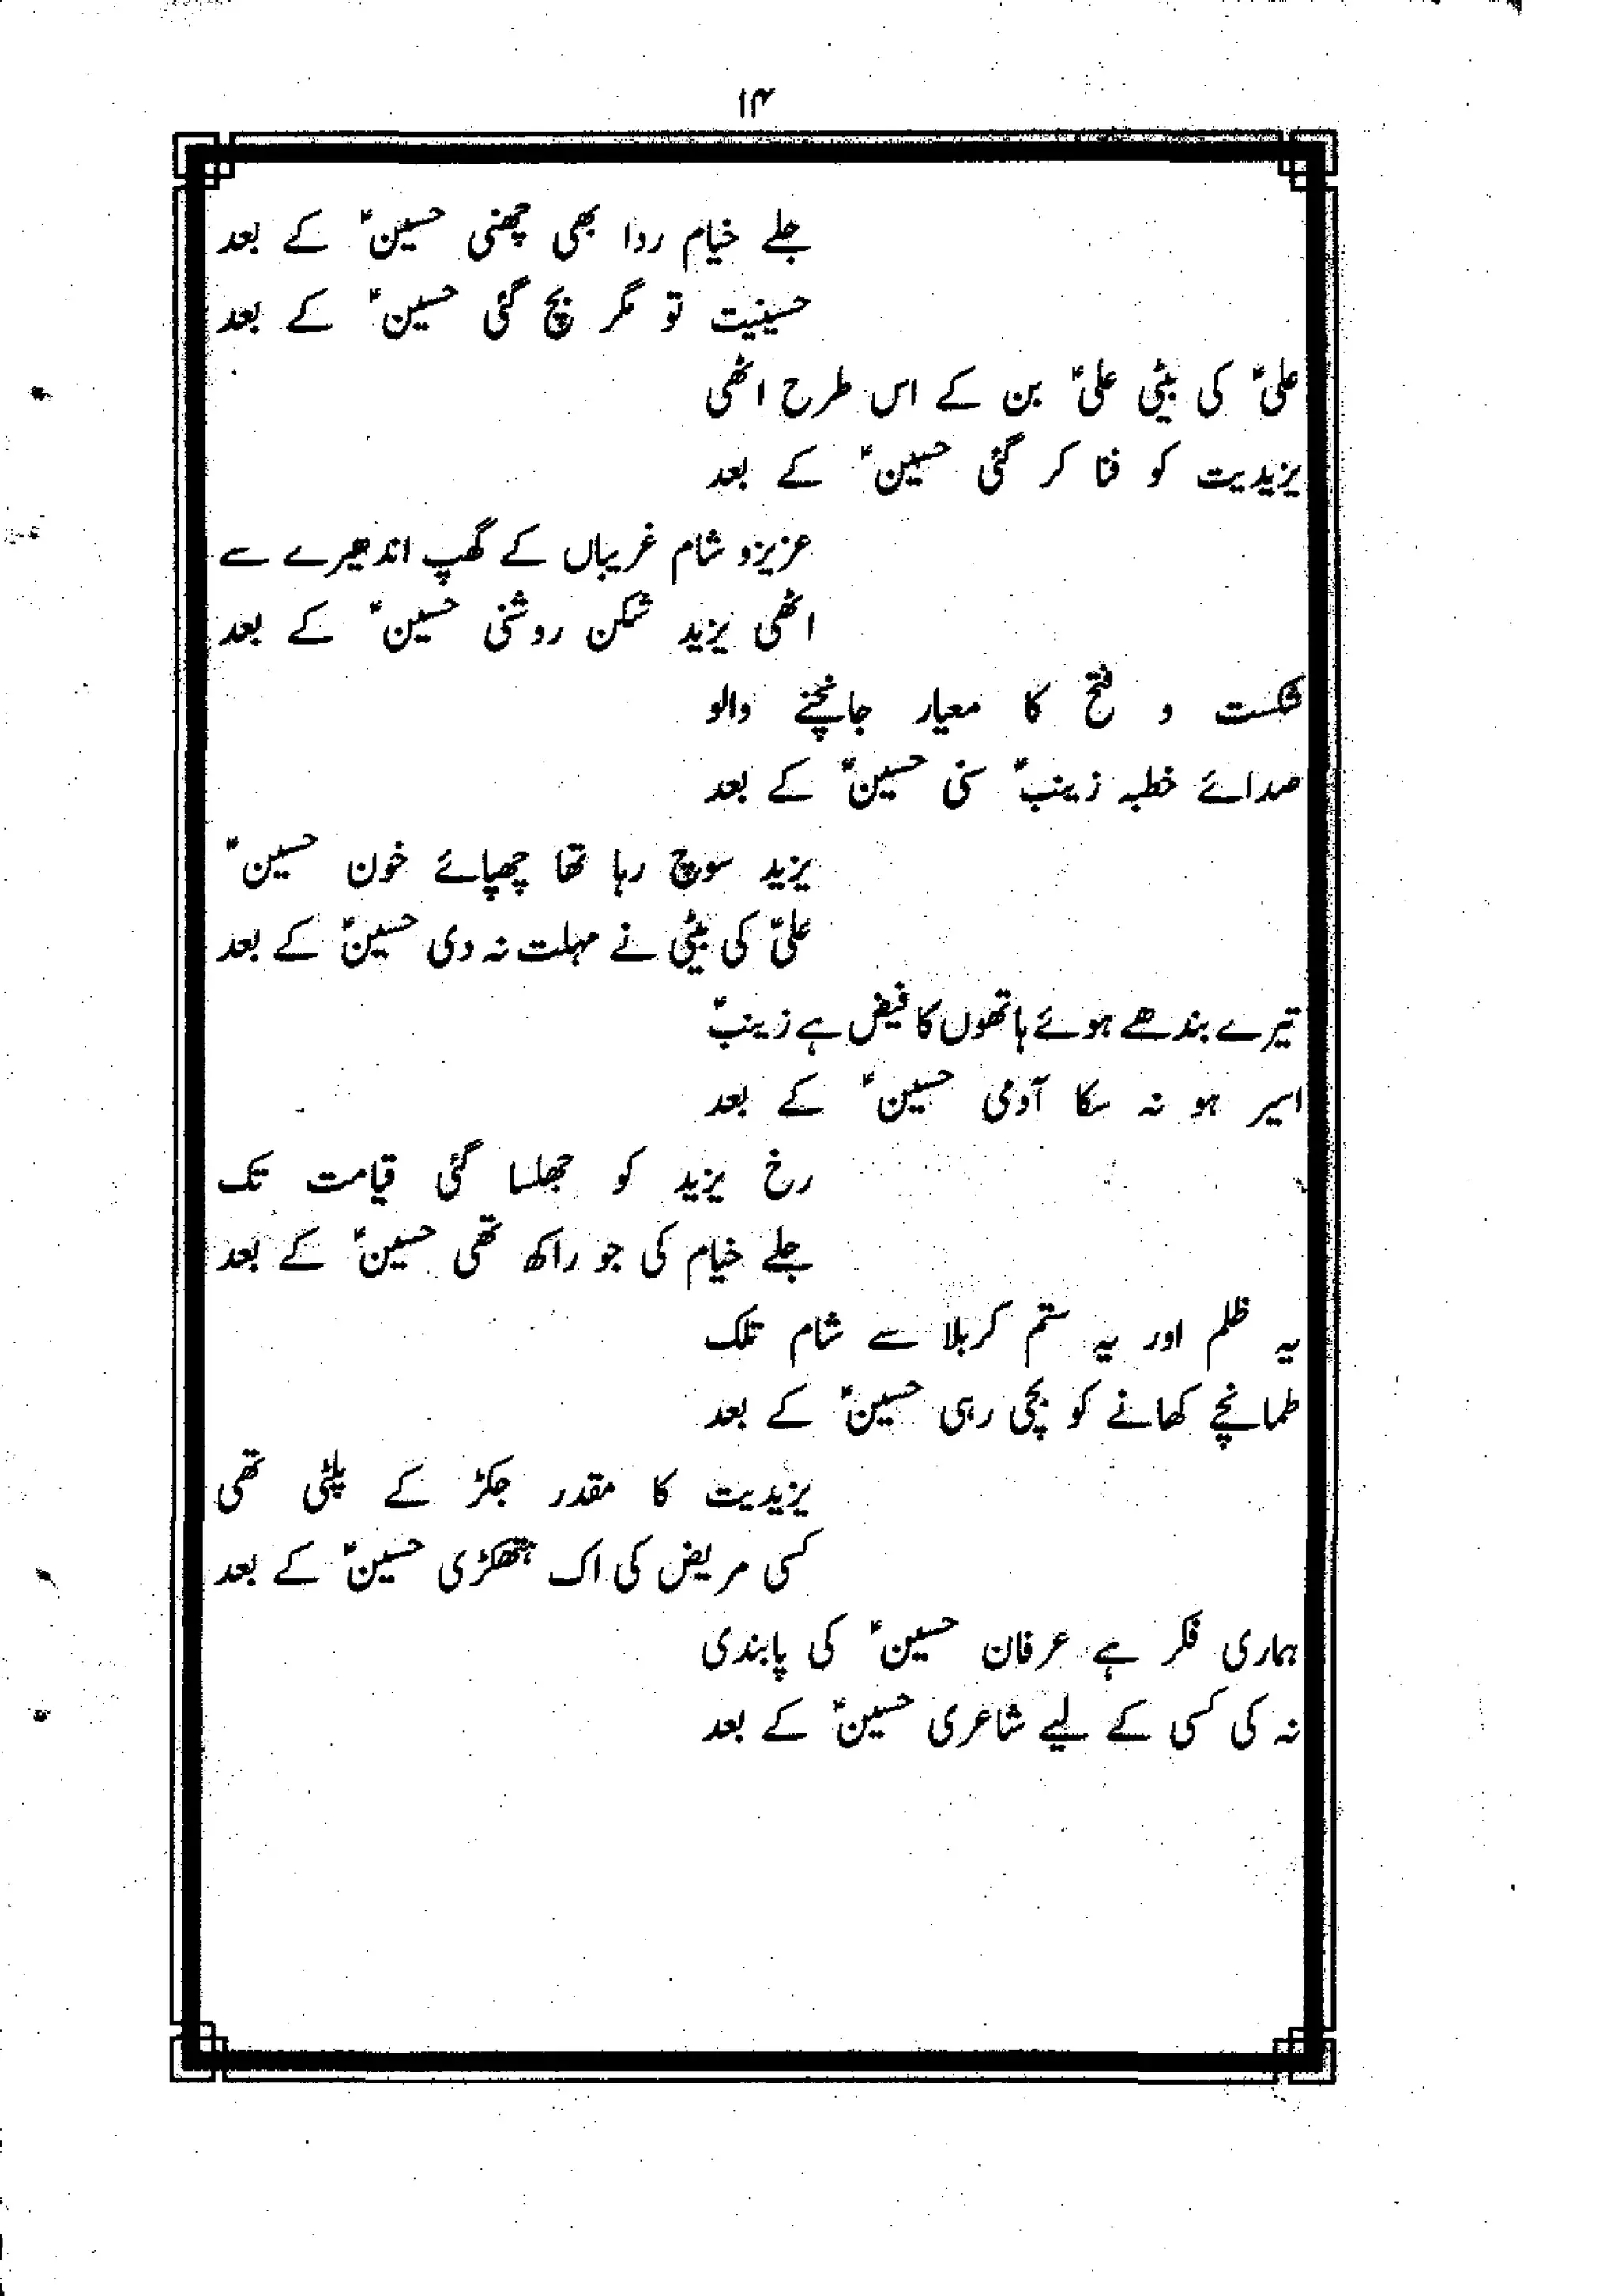 ۱۴
جلے خیام ردا بھی چھنی حسینؑ کے بعد
حسینیت تو مگر بچ گئی حسینؑ کے بعد
علیؑ کی بیٹی علیؑ بن کے اس طرح اٹھی
یزیدیت کو فنا کر گئی حسینؑ کے بعد
عزیزو شام غریباں کے گھپ اندھیرے سے
اٹھی یزید شکن روشنی حسینؑ کے بعد
شکست و فتح کا معیار جانچنے والو
صدائے خطبہ زینبؑ سنی حسینؑ کے بعد
یزید سوچ رہا تھا چھپائے خون حسینؑ
علیؑ کی بیٹی نے مہلت نہ دی حسینؑ کے بعد
تیرے بندھے ہوئے ہاتھوں کا فیض ہے زینبؑ
اسیر ہو نہ سکا آدمی حسینؑ کے بعد
رخ یزید کو جھلسا گئی قیامت تک
جلے خیام کی جو راکھ تھی حسینؑ کے بعد
یہ ظلم اور یہ ستم کربلا سے شام تلک
طمانچے کھانے کو بچی رہی حسینؑ کے بعد
یزیدیت کا مقدر جکڑ کے پلٹی تھی
کسی مریض کی اک ہتھکڑی حسینؑ کے بعد
ہماری فکر ہے عرفان حسینؑ کی پابندی
نہ کی کسی کے لیے شاعری حسینؑ کے بعد